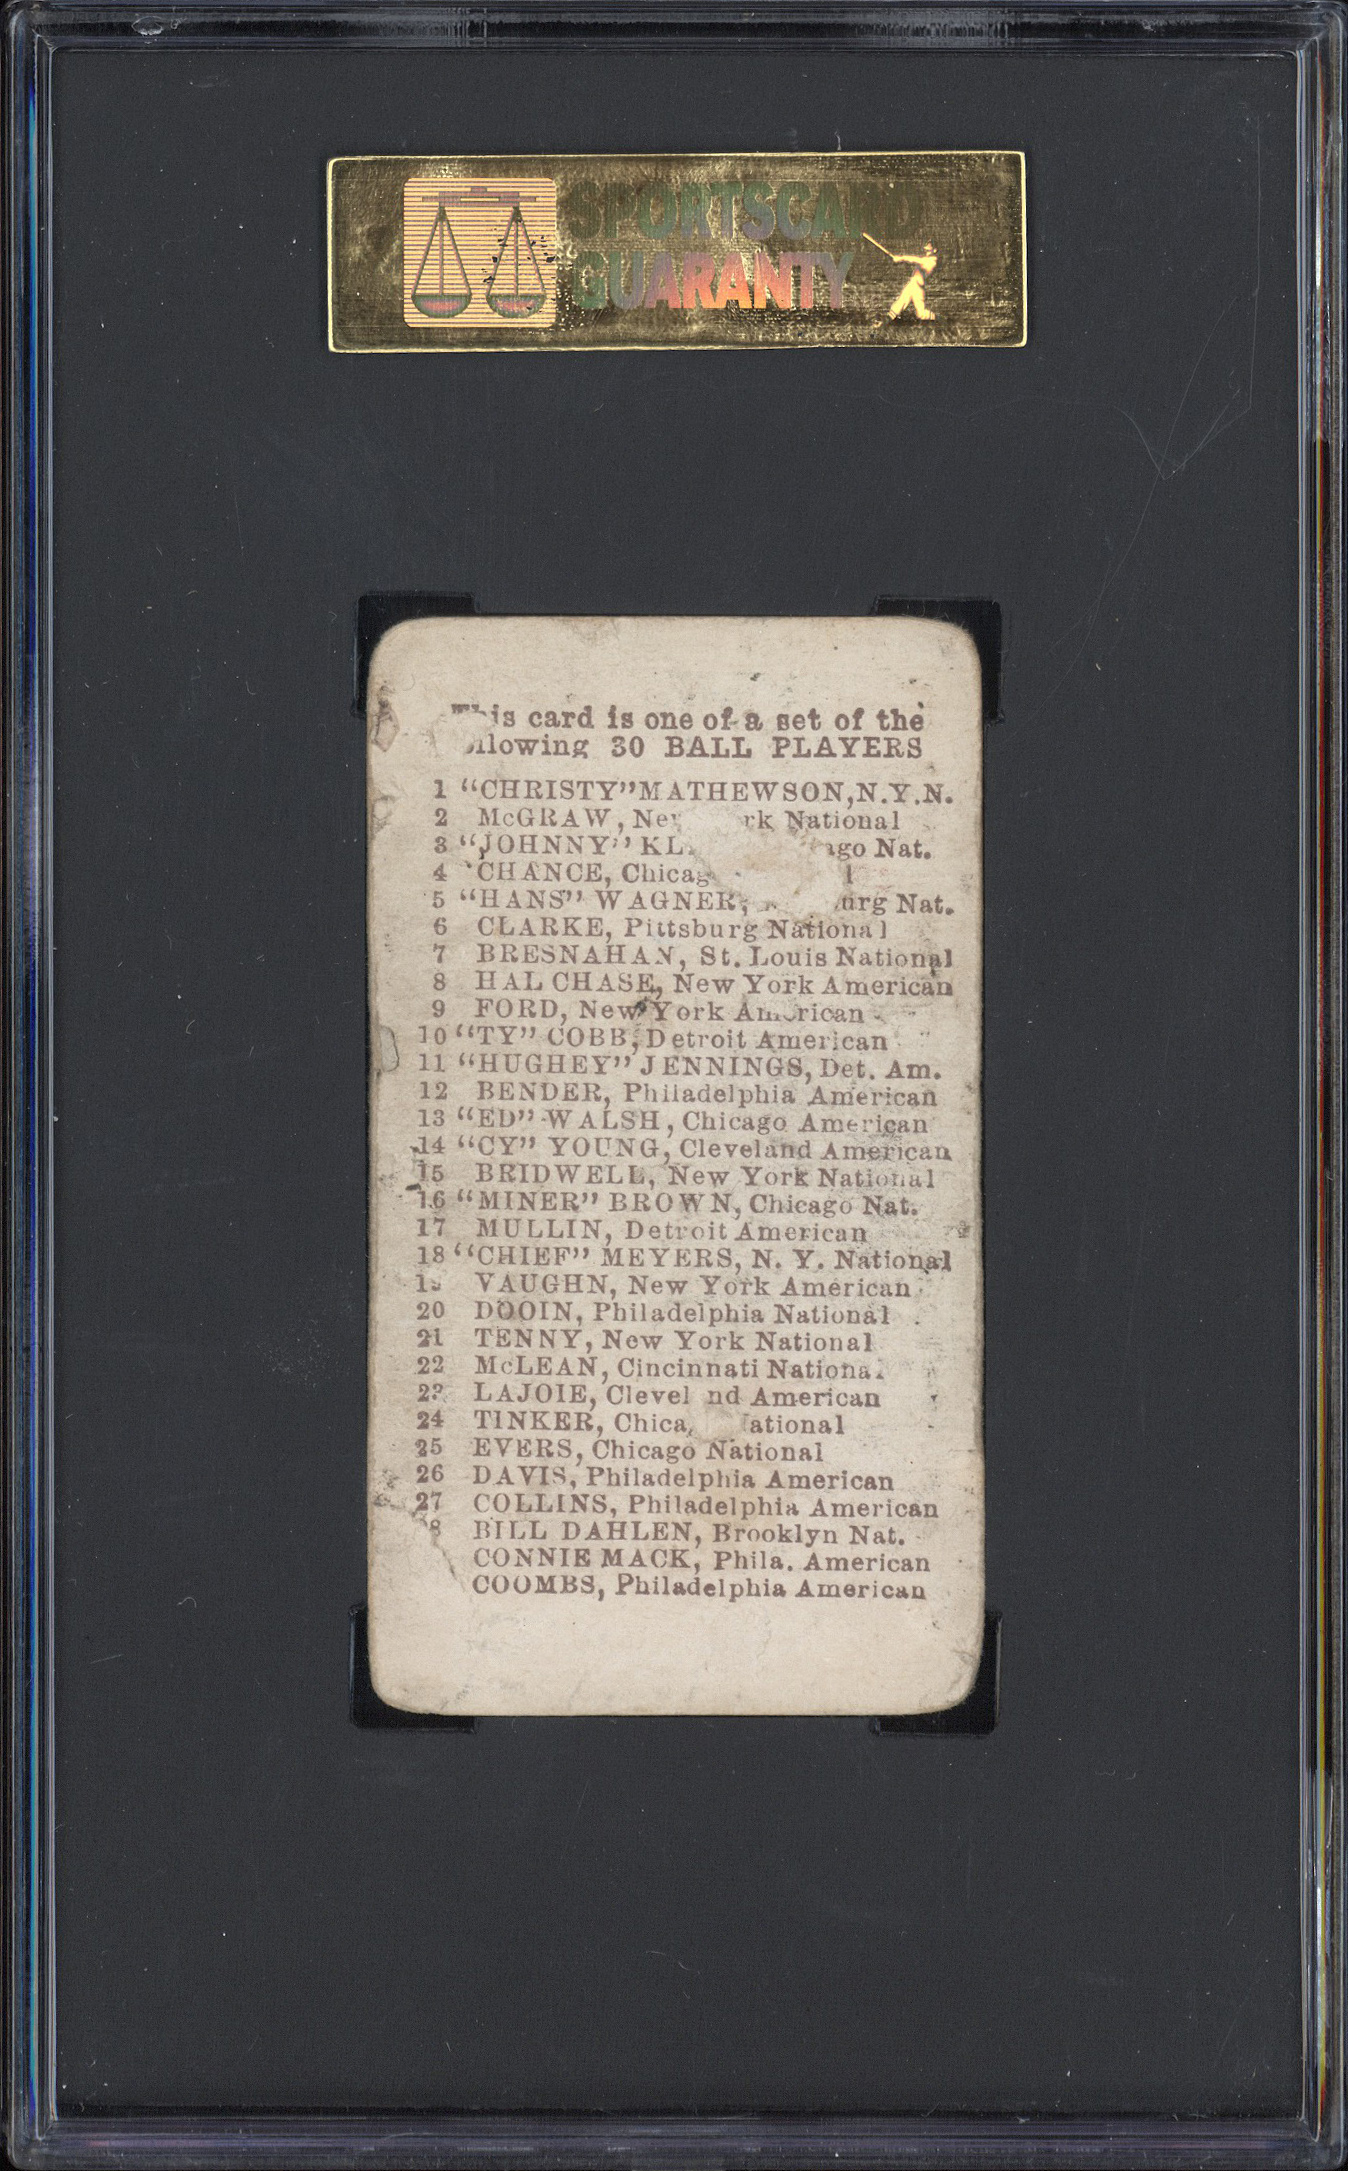 SPORTSCARD
GUARANTY
is card is one of a set of the
llowing 30 BALL PLAYERS
1 "CHRISTY" MATHEWSON, N.Y.N.
2 McGRAW, National
3 "JOHNNY" Nat.
4 CHANCE,
5 "HANS" WAGNER, Nat.
6 CLARKE, Pittsburg National
7 BRESNAHAN, St. Louis National
8 HAL CHASE, New York American
9 FORD, New York American
10 "TY" COBB, Detroit American
11 "HUGHEY" JENNINGS, Det. Am.
12 BENDER, Philadelphia American
13 "ED" WALSH, Chicago American
14 "CY" YOUNG, Cleveland American
15 BRIDWELL, New York National
16 "MINER" BROWN, Chicago Nat.
17 MULLIN, Detroit American
18 "CHIEF" MEYERS, N. Y. National
VAUGHN, New York American
20 DOOIN, Philadelphia National
21 TENNY, New York National
22 McLEAN, Cincinnati National
LAJOIE, American
24 TINKER,
25 EVERS, Chicago National
26 DAVIS, Philadelphia American
27 COLLINS, Philadelphia American
8 BILL DAHLEN, Brooklyn Nat.
CONNIE MACK, Phila. American
COOMBS, Philadelphia American